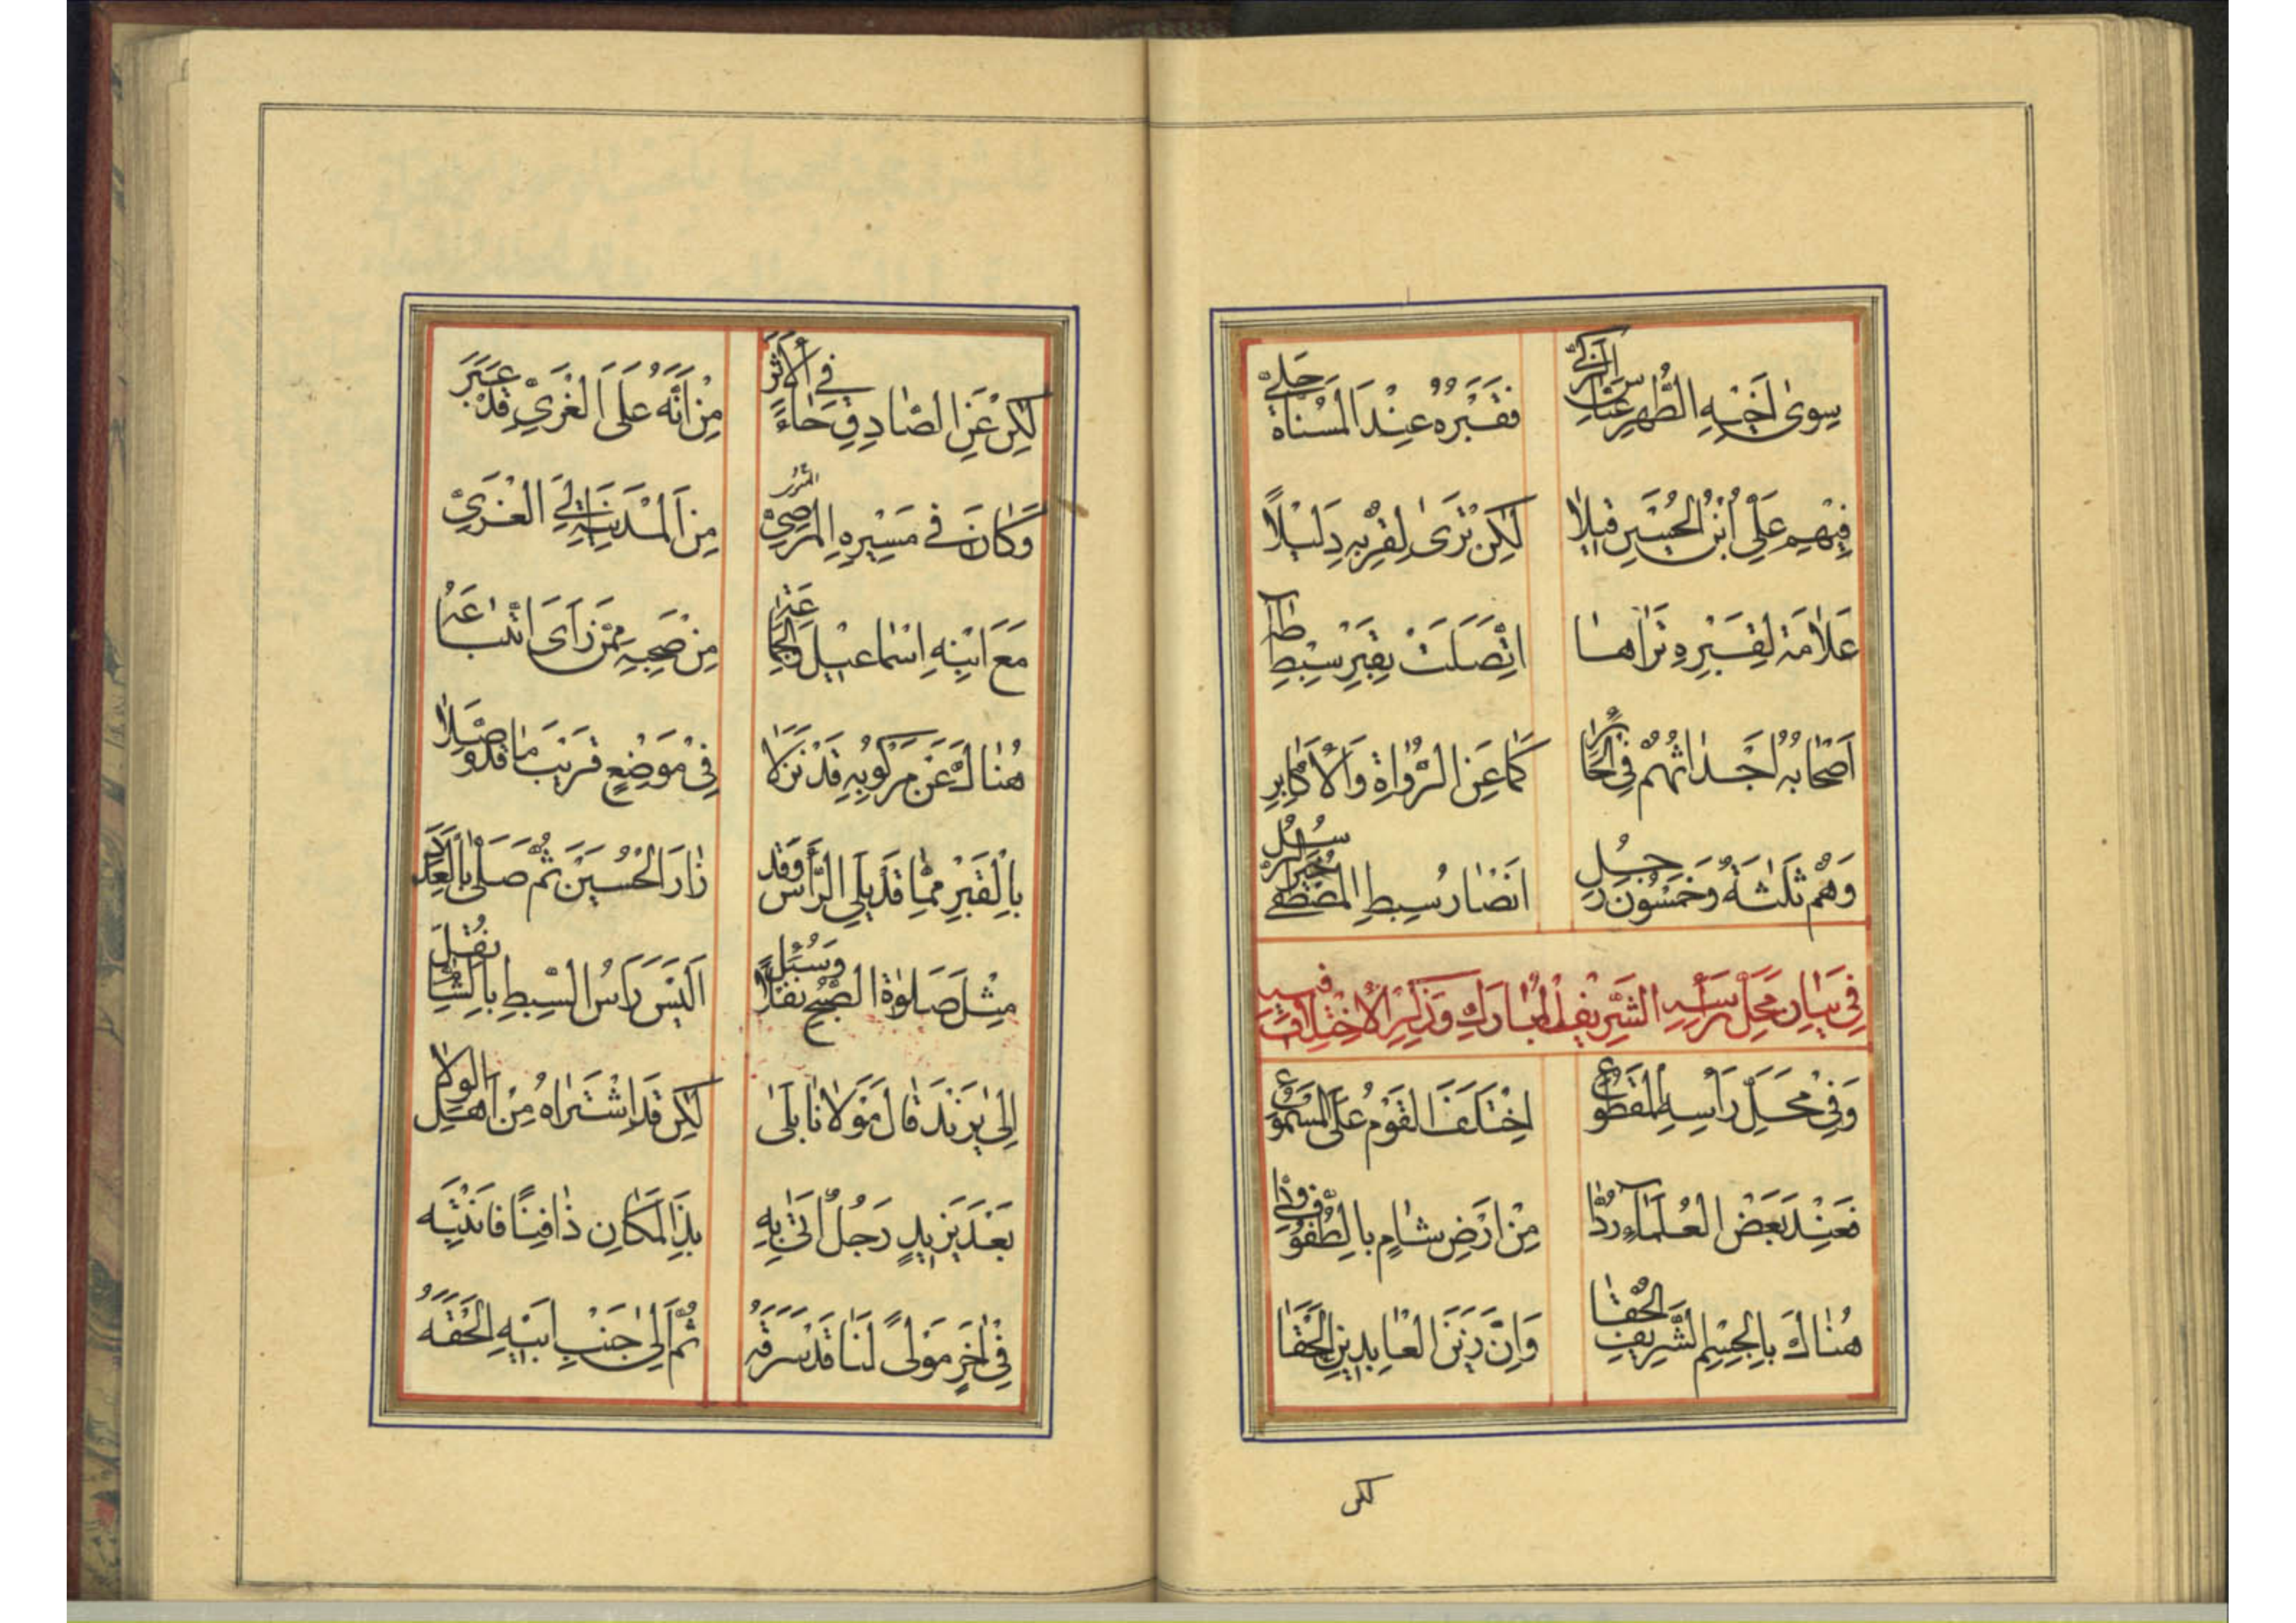 سِوىٰ اَخٖيْهِ الطُّهْرِ عَبَّاسِ الزَّكيّْ فَقَبْرُهُ عِنْدَ الْمُسَنَّاةِ جَلِيّْ
فٖيْهِمْ عَلِيُّ ابْنُ الْحُسَيْنِ قٖيْلاٰ لٰكِنْ تَرَىٰ لِقُرْبِهِ دَلٖيْلاً
عَلاٰمَةً لِقَبْرِهِ تَرَاهٰا اتَّصَلَتْ بِقَبْرِ سِبْطِ طٰهٰ
اَصْحٰابُهُ اَجْدٰاثُهُمْ فِي الْحٰائِرِ كَمٰا عَنِ الرُّوٰاةِ وَالْاَكٰابِرِ
وَهُمْ ثَلٰثَةٌ وَخَمْسُونَ رَجُلْ اَنْصٰارُ سِبْطِ الْمُصْطَفىٰ خَيْرِ الرُّسُلْ
فِي بَيٰانِ مَحَلِّ رَأْسِهِ الشَّرِيْفِ الْمُبٰارَكِ وَذِكْرِ الْاِخْتِلٰافِ فيهِ
وَفِيْ مَحَلِّ رَأْسِهِ الْمَقْطُوْعِ اِخْتَلَفَ الْقَوْمُ عَلَى الْمَسْمُوْعِ
فَعِنْدَ بَعْضِ الْعُلَمٰاءِ رُدَّا مِنْ اَرْضِ شٰامٍ بِالطُّفُوْفِ
هُنٰاكَ بِالْجِسْمِ الشَّرِيْفِ اُلْحِقٰا وَاِنَّ زَيْنَ الْعٰابِدٖيْنَ اَلْحَقٰا
لكن
لٰكِنْ عَنِ الصّٰادِقِ جٰاءَ فِي الْاَثَرْ مِنْ اَنَّهُ عَلَى الْغَرِيِّ قَدْ عَبَرْ
وَكٰانَ فِي مَسِيْرِهِ الْمَرْضِيّْ مِنَ الْمَدِيْنَةِ اِلَى الْغَرِيّْ
مَعَ ابْنِهِ اِسْمٰاعٖيْلَ وَالْجَمٰاعَةْ مِنْ صَحْبِهِ مِمَّنْ رَاَى اتِّبٰاعَهُ
هُنٰاكَ عَنْ مَرْكُوْبِهِ قَدْ نَزَلاٰ فِيْ مَوْضِعٍ قَرِيْبَ مٰا قَدْ وَصَلاٰ
بِالْقَبْرِ مِمّٰا قَدْ يَلِي الرَّأْسَ وَقَدْ زٰارَ الْحُسَيْنَ ثُمَّ صَلّٰى
مِثْلَ صَلٰوةِ الصُّبْحِ نَفْلاً وَسُئِلْ اَلَيْسَ رَأْسُ السِّبْطِ بِالشّٰامِ نُقِلْ
اِلىٰ يَزِيْدَ قٰالَ مَوْلاٰنٰا بَلىٰ لٰكِنْ قَدِ اشْتَرٰاهُ مِنْ اَهْلِ الْوِلاٰ
بَعْدَ يَزٖيْدٍ رَجُلٌ اَتىٰ بِهِ بِذَا الْمَكٰانِ دٰافِنًا فَانْتَبِهِ
فِيْ اٰخَرٍ مَوْلىً لَنٰا قَدْ سَرَقَهُ ثُمَّ اِلىٰ جَنْبِ اَبٖيْهِ اَلْحَقَهُ